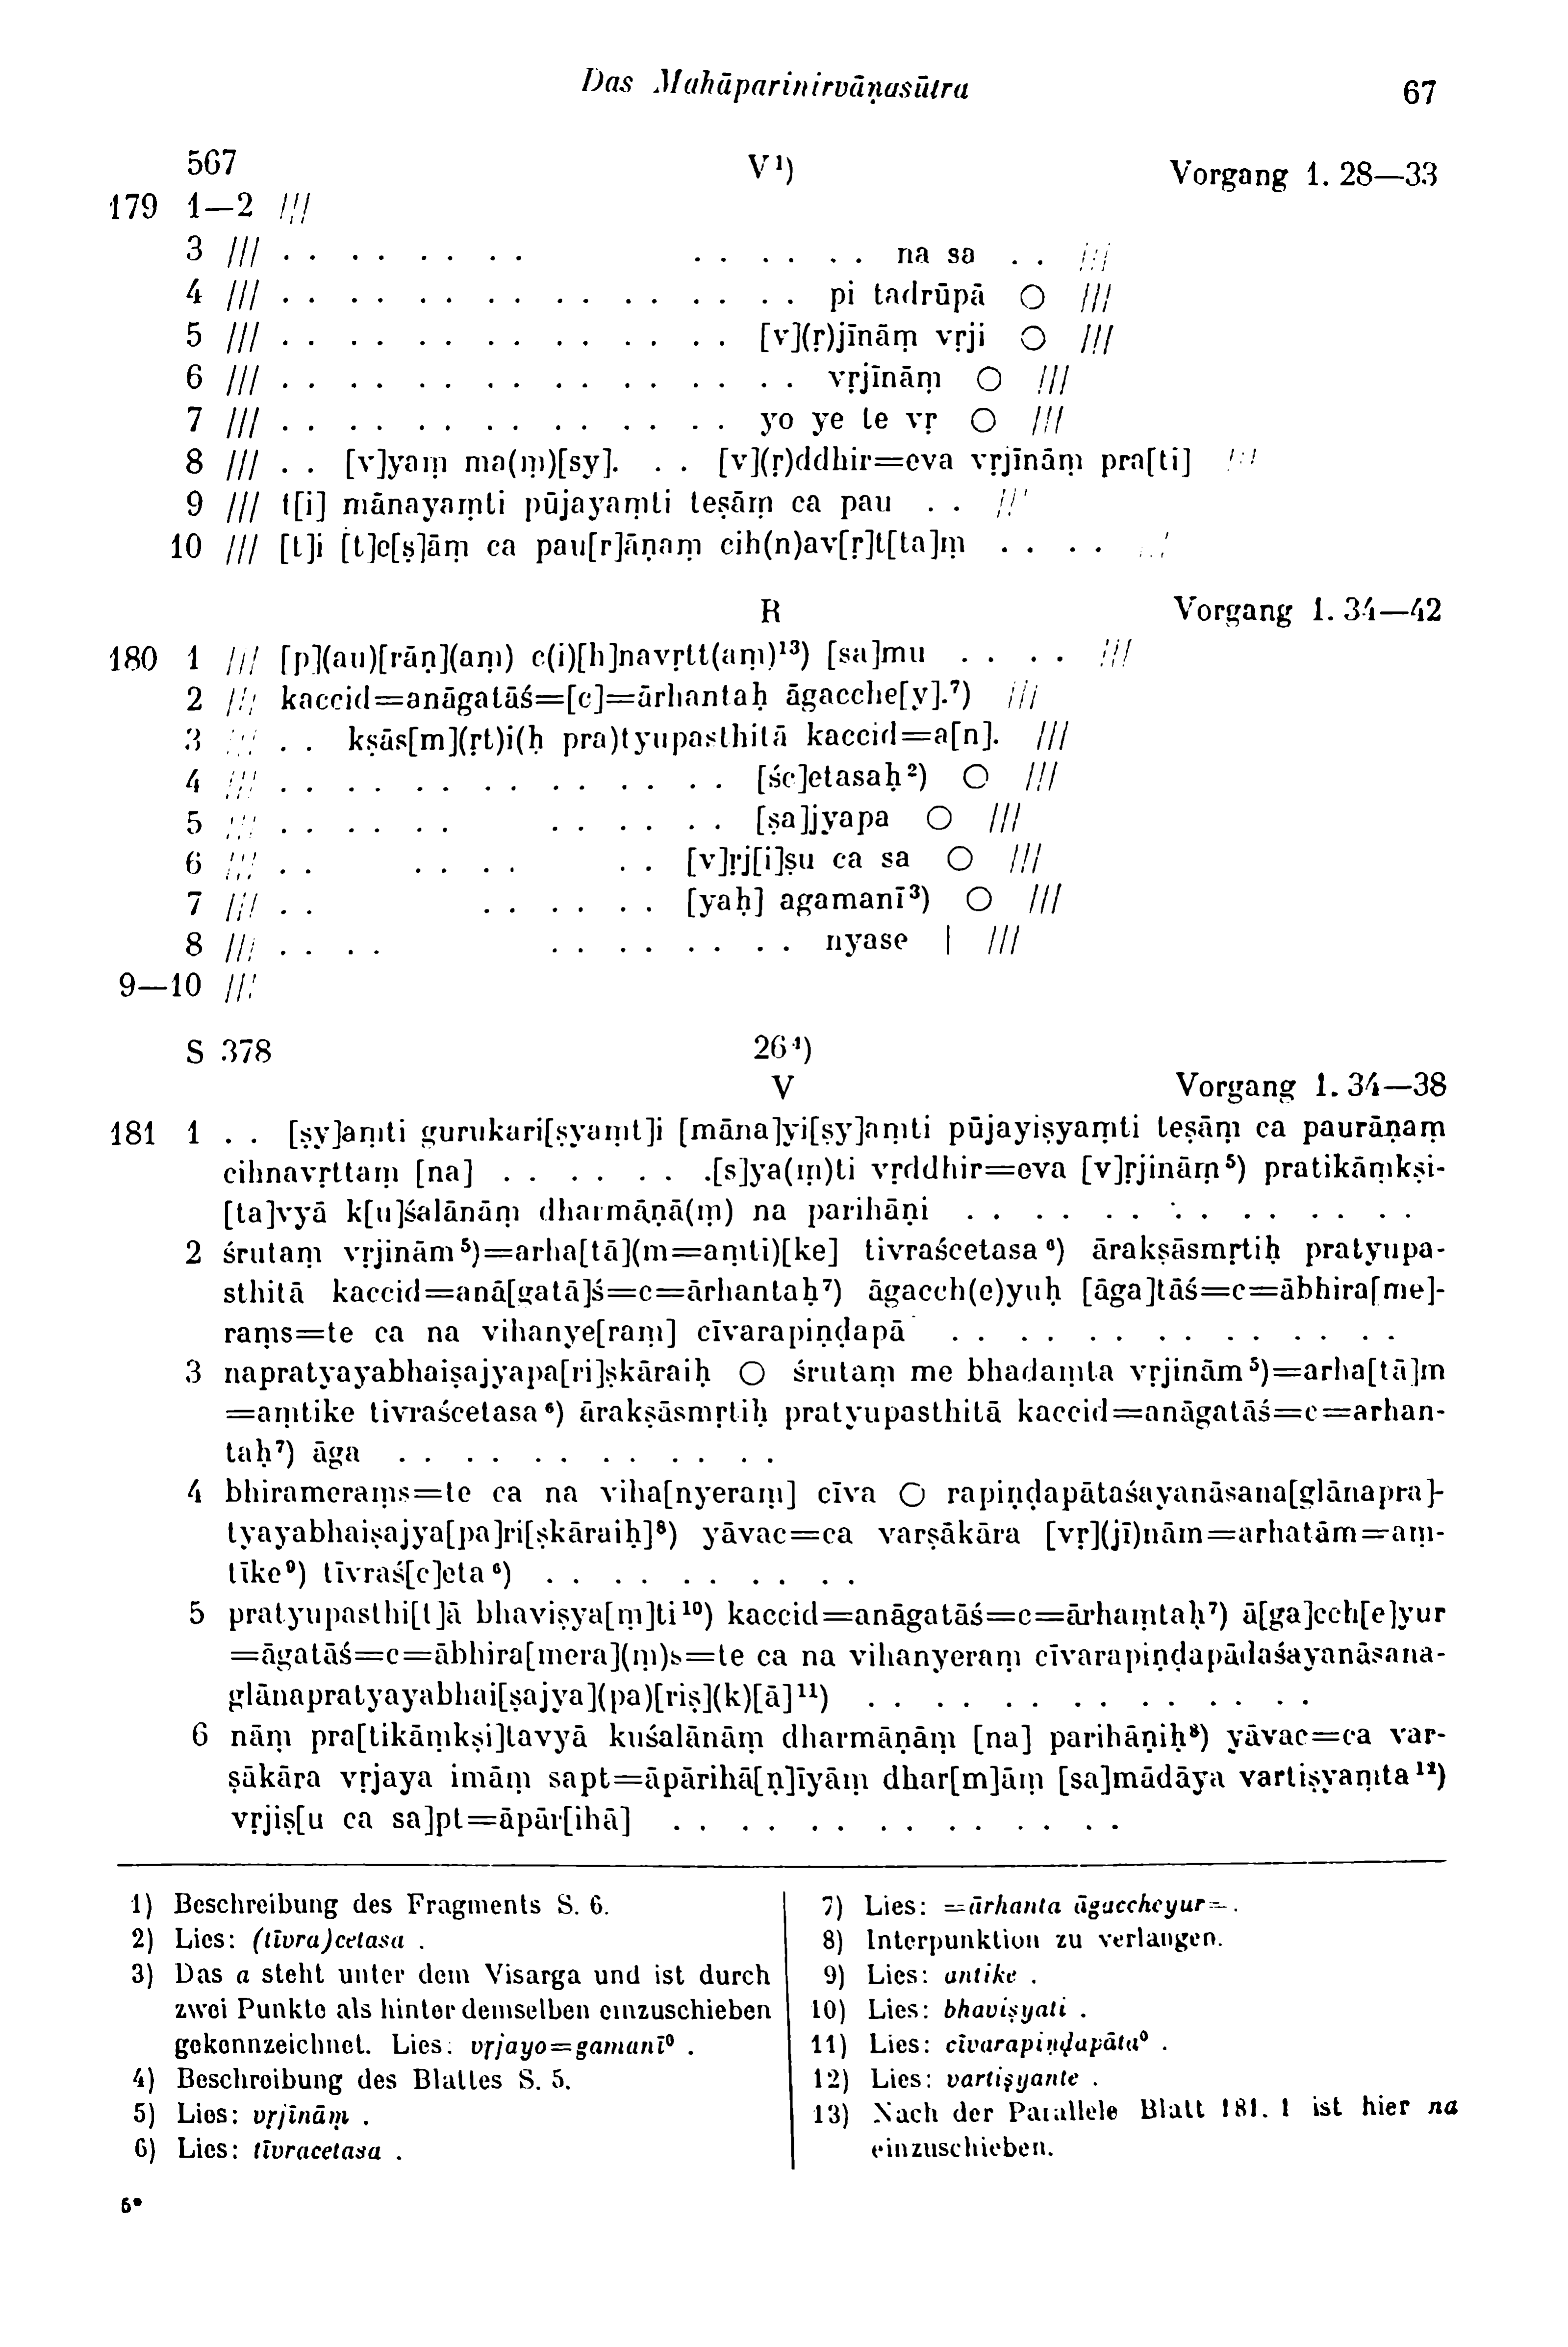 Das Mahāparinirvāṇasūtra 67
567 V¹) Vorgang 1. 28—33
179 1—2 ///
3 /// . . . . . . . . . . . . . . na sa . . ///
4 /// . . . . . . . . . . . . . . . . pi tadrūpā ○ ///
5 /// . . . . . . . . . . . . . . [v](ṛ)jīnāṃ vṛji ○ ///
6 /// . . . . . . . . . . . . . . . . vṛjīnāṃ ○ ///
7 /// . . . . . . . . . . . . . . yo ye te vṛ ○ ///
8 /// . . [v]yaṃ ma(ṃ)[sy]. . . [v](ṛ)ddhir=eva vṛjīnāṃ pra[ti] ///
9 /// t[i] mānayaṃti pūjayaṃti teṣāṃ ca pau . . ///
10 /// [t]i [t]e[ṣ]āṃ ca pau[r]āṇaṃ cih(n)av[ṛ]t[ta]ṃ . . . . ///
R Vorgang 1. 34—42
180 1 /// [p](au)[rāṇ](aṃ) c(i)[h]navṛtt(aṃ)¹³) [sa]mu . . . . ///
2 /// kaccid=anāgatāś=[c]=ārhantaḥ āgacche[y].⁷) ///
3 /// . . kṣās[m](ṛt)i(ḥ pra)tyupasthitā kaccid=a[n]. ///
4 /// . . . . . . . . . . . . . . [śc]etasaḥ²) ○ ///
5 /// . . . . . . . . . . . . [ṣa]jyapa ○ ///
6 /// . . . . . . . . [v]ṛj[i]ṣu ca sa ○ ///
7 /// . . . . . . . . [yaḥ] agamanī³) ○ ///
8 /// . . . . . . . . . . . . nyase | ///
9—10 ///
S 378 26⁴)
V Vorgang 1. 34—38
181 1 . . [ṣy]aṃti gurukari[ṣyaṃt]i [māna]yi[ṣy]aṃti pūjayiṣyaṃti teṣāṃ ca paurāṇaṃ
cihnavṛttaṃ [na] . . . . . . .[s]ya(ṃ)ti vṛddhir=eva [v]ṛjināṃ⁵) pratikāṃkṣi-
[ta]vyā k[u]śalānāṃ dharmāṇā(ṃ) na parihāṇi . . . . . . . . . . . . . .
2 śrutaṃ vṛjinām⁵)=arha[tā](m=aṃti)[ke] tivraścetasa⁶) ārakṣāsmṛtiḥ pratyupa-
sthitā kaccid=anā[gatā]ś=c=ārhantaḥ⁷) āgacch(e)yuḥ [āga]tāś=c=ābhira[me]-
raṃs=te ca na vihanye[raṃ] cīvarapiṇḍapā . . . . . . . . . . . . . .
3 napratyayabhaiṣajyapa[ri]ṣkāraiḥ ○ śrutaṃ me bhadaṃta vṛjinām⁵)=arha[tā]m
=aṃtike tivraścetasa⁶) ārakṣāsmṛtiḥ pratyupasthitā kaccid=anāgatāś=c=arhan-
taḥ⁷) āga . . . . . . . . . . . .
4 bhirameraṃs=te ca na viha[nyeraṃ] cīva ○ rapiṇḍapātaśayanāsana[glānapra]-
tyayabhaiṣajya[pa]ri[ṣkāraiḥ]⁸) yāvac=ca varṣākāra [vṛ](jī)nām=arhatām=aṃ-
tīke⁹) tīvraś[c]eta⁶) . . . . . . . . . .
5 pratyupasthi[t]ā bhaviṣya[ṃ]ti¹⁰) kaccid=anāgatāś=c=ārhaṃtaḥ⁷) ā[ga]cch[e]yur
=āgatāś=c=ābhira[mera](ṃ)s=te ca na vihanyeraṃ cīvarapiṇḍapādaśayanāsana-
glānapratyayabhai[ṣajya](pa)[riṣ](k)[ā]¹¹) . . . . . . . . . . . . . .
6 nāṃ pra[tikāṃkṣi]tavyā kuśalānāṃ dharmāṇāṃ [na] parihāṇiḥ⁸) yāvac=ca var-
ṣākāra vṛjaya imāṃ sapt=āpārihā[ṇ]īyāṃ dhar[m]āṃ [sa]mādāya vartiṣyaṃta¹²)
vṛjiṣ[u ca sa]pt=āpār[ihā] . . . . . . . . . . . . . .
1) Beschreibung des Fragments S. 6.
2) Lies: (tīvra)cetasa .
3) Das a steht unter dem Visarga und ist durch
zwei Punkte als hinter demselben einzuschieben
gekennzeichnet. Lies: vṛjayo=gamanī⁰ .
4) Beschreibung des Blattes S. 5.
5) Lies: vṛjīnāṃ .
6) Lies: tīvracetasa .
7) Lies: =ārhanta āgaccheyur= .
8) Interpunktion zu verlangen.
9) Lies: antike .
10) Lies: bhaviṣyati .
11) Lies: cīvarapiṇḍapāta⁰ .
12) Lies: vartiṣyante .
13) Nach der Parallele Blatt 181. 1 ist hier na
einzuschieben.
5*